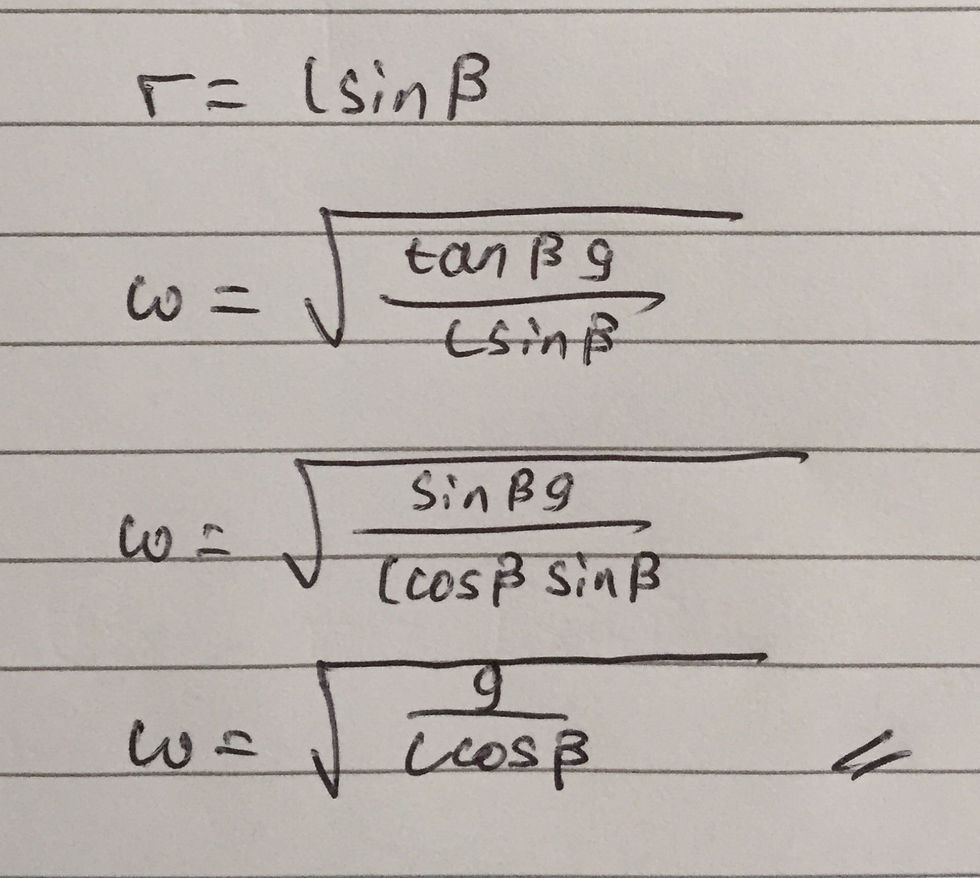 r = l sin β
ω = √(tan β g / l sin β)
ω = √(sin β g / l cos β sin β)
ω = √(g / l cos β)